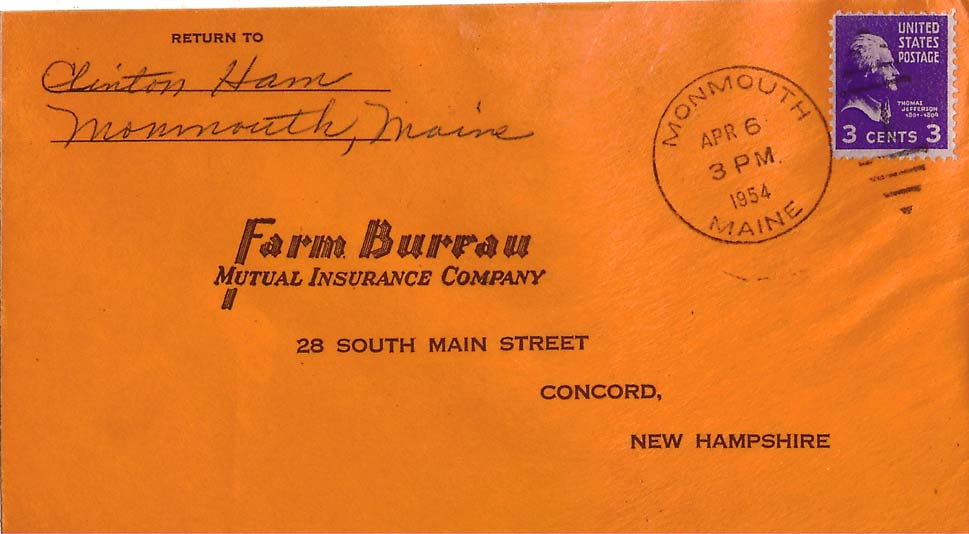 RETURN TO
Clinton Ham
Monmouth, Maine
UNITED
STATES
POSTAGE
THOMAS
JEFFERSON
1801-1809
3 CENTS 3
MONMOUTH
APR 6
3 PM.
1954
MAINE
Farm Bureau
MUTUAL INSURANCE COMPANY
28 SOUTH MAIN STREET
CONCORD,
NEW HAMPSHIRE